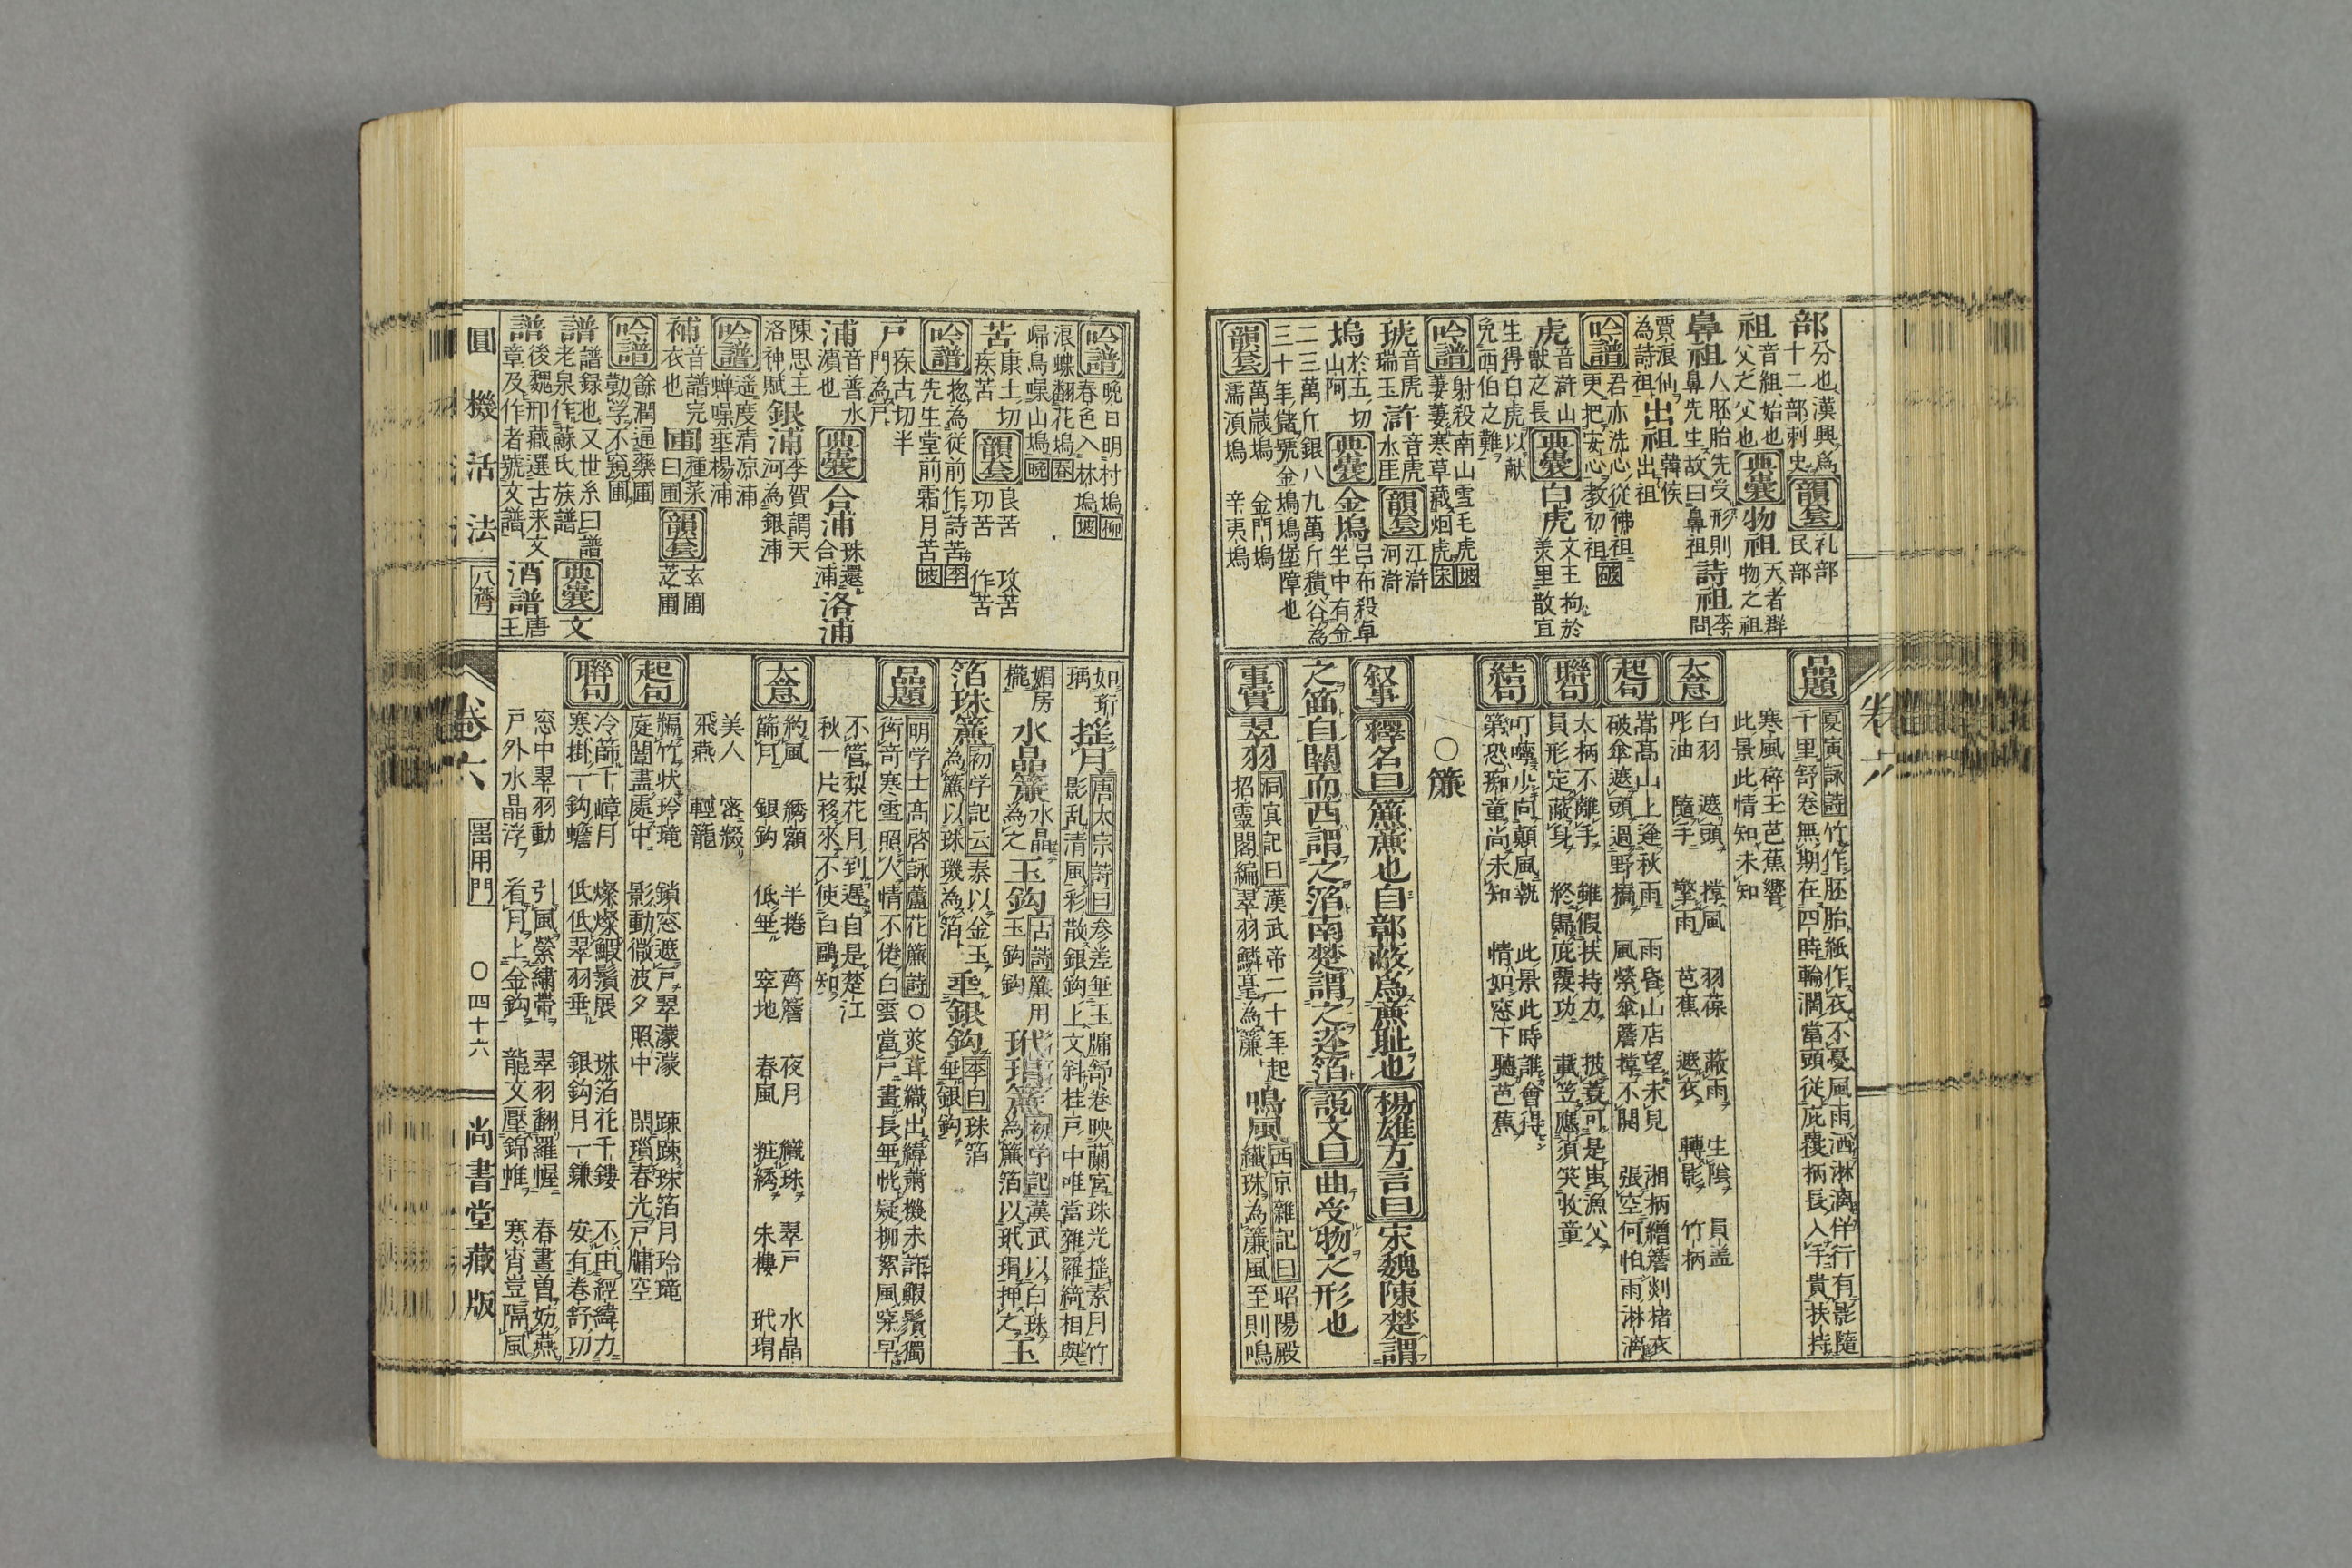 部分也漢興為十二部刺史韻套礼部民部
祖音組始也父之父也典囊物祖天者群物之祖
鼻祖人胚胎先受形則鼻先生故曰鼻祖詩祖李問
賈浪仙為詩祖出祖韓侯出祖
吟譜君亦洗心從佛祖更把安心教初祖
虎音滸山獣之長典囊白虎文王拘於羑里散宜
生得白虎以献免西伯之難
吟譜射殺南山雪毛虎坡萋萋寒草藏烟虎宋
琥音虎瑞玉滸音虎水匡韻套江滸河滸
塢於五切山阿典囊金塢呂布殺卓坐中有金
二三萬斤銀八九萬斤積谷為三十年儲號金塢塢堡障也
韻套萬嵗塢金門塢濡湏塢辛夷塢
品題夏寅詠詩竹作胚胎紙作衣不憂風雨洒淋漓伴行有影隨
千里舒卷無期在四時輪濶當頭從庇覆柄長入手貴扶持
寒風碎玉芭蕉響此景此情知未知
大意白羽遮頭撐風羽葆蔽雨生陰員盖
彤油隨手擎雨芭蕉遮衣轉影竹柄
起句嵩髙山上逢秋雨雨昏山店望未見湘柄繒簷剡楮衣
破傘遮頭過野橋風縈傘簷撐不開張空何怕雨淋漓
聯句太柄不離手雖假扶持力披蓑可是虫漁父
員形定蔽身終歸庇覆功戴笠應須笑牧童
結句叮嚀少向顛風執此景此時誰會得
第恐痴童尚未知情如窓下聽芭蕉
○簾
叙事釋名曰簾薕也自鄣蔽為薕耻也楊雄方言曰宋魏陳楚謂
之笛自關而西謂之箔南楚謂之蓬箔説文曰曲受物之形也
事實翠羽洞㝠記曰漢武帝二十年起招靈閣編翠羽鱗毫為簾鳴風西京雜記曰昭陽殿織珠為簾風至則鳴
卷六
吟譜晩日明村塢柳春色入林塢坡
浪蝶翻花塢春歸鳥噪山塢晩
苦康土切疾苦韻套良苦攻苦功苦作苦
吟譜㧾為從前作詩苦季先生堂前霜月苦坡
戸疾古切半門為戸
浦音普水瀕也典囊合浦珠還合浦洛浦
陳思王洛神賦銀浦李賀謂天河為銀浦
吟譜遥度清凉浦蝉噪垂楊浦
補音譜完衣也圃種菜曰圃韻套玄圃芝圃
吟譜餘潤通藥圃勤学不窺圃
譜譜録也又世糸曰譜老泉作蘇氏族譜典囊文
譜後魏邢藏選古来文章及作者號文譜酒譜唐王
如珩瑀揺月唐太宗詩曰参差垂玉牖舒卷映蘭宮珠光揺素月竹
影乱清風彩散銀鈎上文斜桂戸中唯當雜羅綺相與
媚房櫳水晶簾水晶為之玉鈎古詩簾用玉鈎鈎玳瑁簾初学記漢武以白珠為簾箔以玳瑁押之玉
箔珠簾初学記云秦以金玉為簾以珠璣為箔垂銀鈎李白珠箔垂銀鈎
品題明学士髙啓詠蘆花簾詩○爽茸織出緯蕭機未許鰕鬚獨
衒竒寒雪照人情不倦白雲當戸晝長垂恍疑柳絮風窣早
不管梨花月到遅自是楚江秋一片移來不使白鷗知
大意約風綉額半捲齊簷夜月織珠翠戸水晶
篩月銀鈎低垂窣地春風粧綉朱樓玳瑁
美人密綴飛燕輕籠
起句編竹状玲瓏鎖窓遮戸翠濛濛踈踈珠箔月玲瓏
庭闈盡處中影動微波夕照中閑瑣春光戸牖空
聯句冷篩千嶂月燦燦鰕鬚展珠箔花千鏤不由經緯力
寒掛一鈎蟾低低翠羽垂銀鈎月一鎌安有卷舒功
窓中翠羽動引風縈繡帶翠羽翻羅幄春晝曽妨燕
戸外水晶浮看月上金鈎龍文壓錦帷寒宵豈隔風
圓機活法 八薺 卷六 噐用門 ○四十六 尚書堂藏版